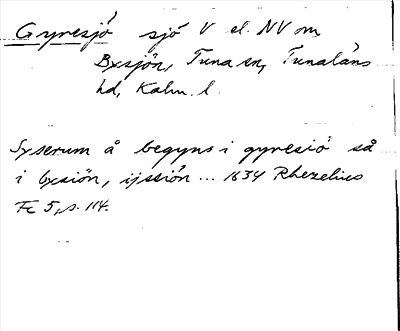 Gyresjö sjö V el. NV om
Bxsjön, Tuna sn, Tunaläns
hd, Kalm. l.
Syserum å begyns i gyresiö så
i bxsiön, ijssiön... 1634 Rhezelius
Fc 5, s. 114.